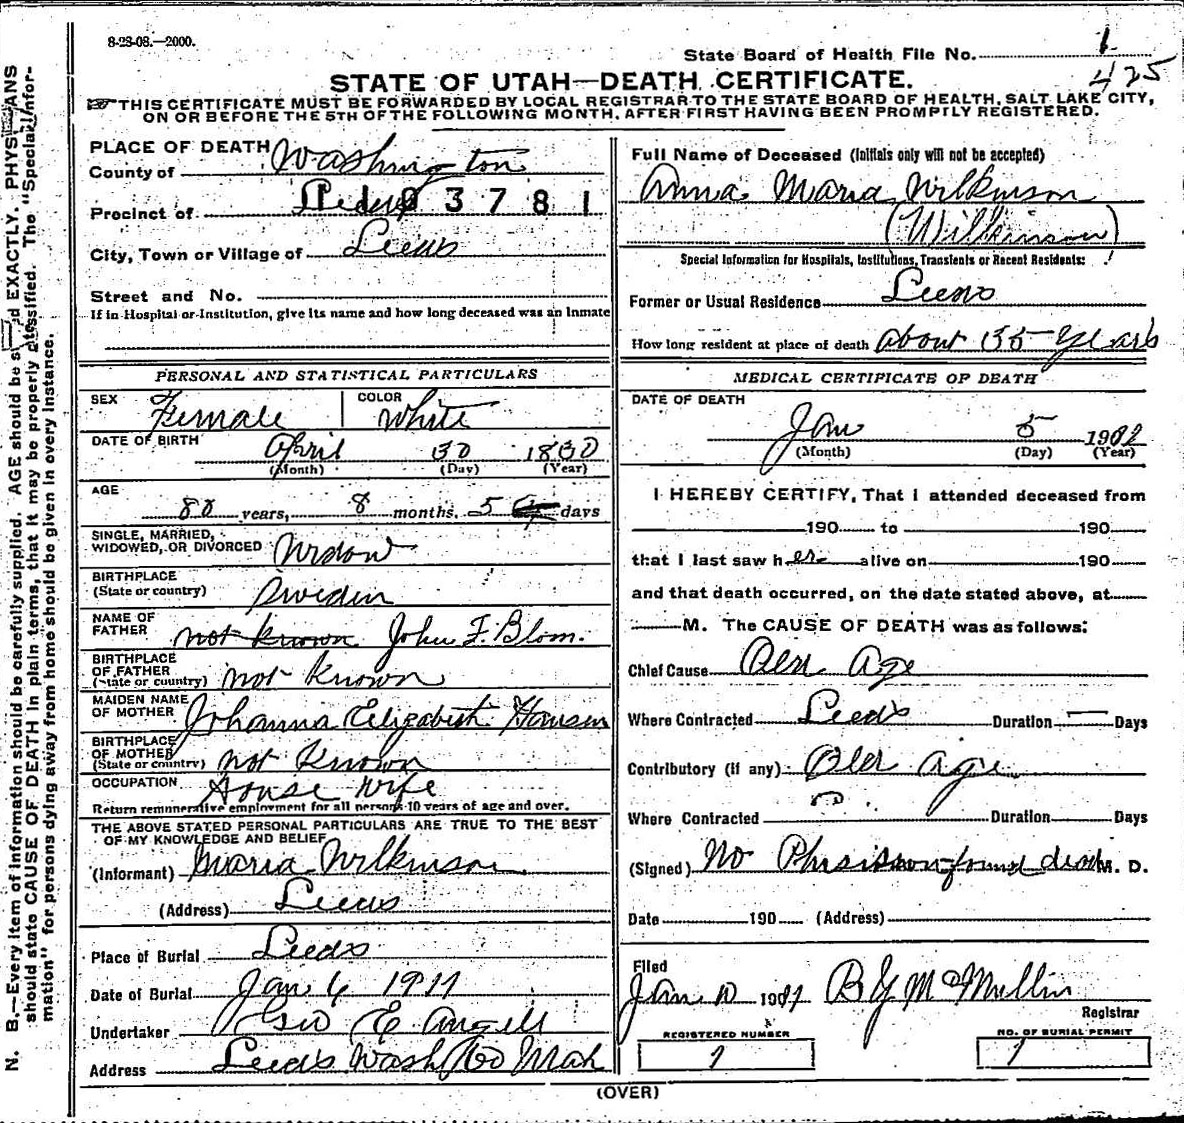 8-28-08.—2000.
State Board of Health File No. 1
425
STATE OF UTAH—DEATH CERTIFICATE.
THIS CERTIFICATE MUST BE FORWARDED BY LOCAL REGISTRAR TO THE STATE BOARD OF HEALTH, SALT LAKE CITY,
ON OR BEFORE THE 5TH OF THE FOLLOWING MONTH, AFTER FIRST HAVING BEEN PROMPTLY REGISTERED.
PLACE OF DEATH
County of Washington
Precinct of Leeds 3781
City, Town or Village of Leeds
Street and No.
If in Hospital or Institution, give its name and how long deceased was an Inmate
PERSONAL AND STATISTICAL PARTICULARS
SEX Female COLOR White
DATE OF BIRTH April 30 1830
(Month) (Day) (Year)
AGE
years, 8 months, 5 days
SINGLE, MARRIED,
WIDOWED, OR DIVORCED Widow
BIRTHPLACE
(State or country) Sweden
NAME OF
FATHER not known John F. Blom.
BIRTHPLACE
OF FATHER
(State or country) not Known
MAIDEN NAME
OF MOTHER Johanna Elizabeth Hansen
BIRTHPLACE
OF MOTHER
(State or country) not Known
OCCUPATION House Wife
Return remunerative employment for all persons 10 years of age and over.
THE ABOVE STATED PERSONAL PARTICULARS ARE TRUE TO THE BEST
OF MY KNOWLEDGE AND BELIEF
(Informant) Maria Wilkinson
(Address) Leeds
Place of Burial Leeds
Date of Burial Jan 6 1911
Undertaker Geo E Angell
Address Leeds Wash Co Utah
Full Name of Deceased (Initials only will not be accepted)
Anna Maria Wilkinson
(Wilkinson)
Special Information for Hospitals, Institutions, Transients or Recent Residents:
Former or Usual Residence Leeds
How long resident at place of death about Years
MEDICAL CERTIFICATE OF DEATH
DATE OF DEATH
Jan 5 19
(Month) (Day) (Year)
I HEREBY CERTIFY, That I attended deceased from
190 to 190
that I last saw her alive on 190
and that death occurred, on the date stated above, at
M. The CAUSE OF DEATH was as follows:
Chief Cause Old Age
Where Contracted Leeds Duration — Days
Contributory (if any) Old age
Where Contracted Duration Days
(Signed) No Phisision found dead M. D.
Date 190 (Address)
Filed
Jan 10 19 B Y McMullin
Registrar
REGISTERED NUMBER
1
NO. OF BURIAL PERMIT
1
(OVER)
N. B.—Every item of information should be carefully supplied. AGE should be stated EXACTLY. PHYSICIANS
should state CAUSE OF DEATH in plain terms, that it may be properly classified. The "Special Infor-
mation" for persons dying away from home should be given in every instance.